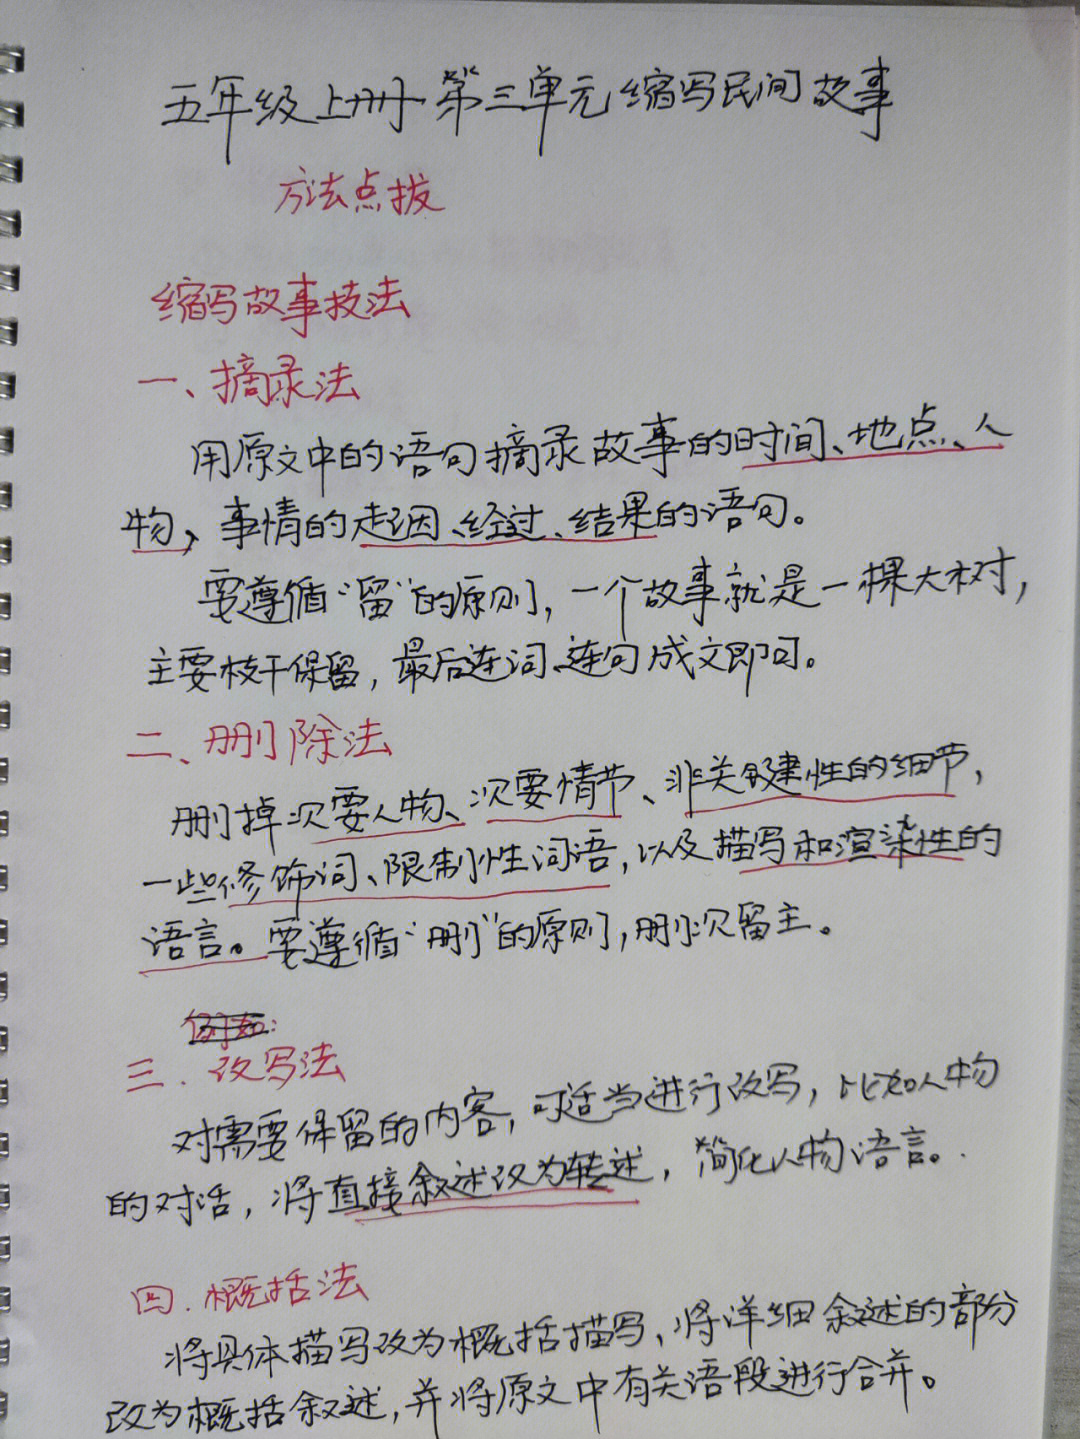 五年级上册第三单元缩写民间故事
方法点拨
缩写故事技法
一、摘录法
用原文中的语句摘录故事的时间、地点、人
物，事情的起因、经过、结果的语句。
要遵循“留”的原则，一个故事就是一棵大树，
主要枝干保留，最后连词、连句成文即可。
二、删除法
删掉次要人物、次要情节、非关键性的细节，
一些修饰词、限制性词语，以及描写和渲染性的
语言。要遵循“删”的原则，删次留主。
例如：
三.改写法
对需要保留的内容，可适当进行改写，比如人物
的对话，将直接叙述改为转述，简化人物语言。
四.概括法
将具体描写改为概括描写，将详细叙述的部分
改为概括叙述，并将原文中有关语段进行合并。